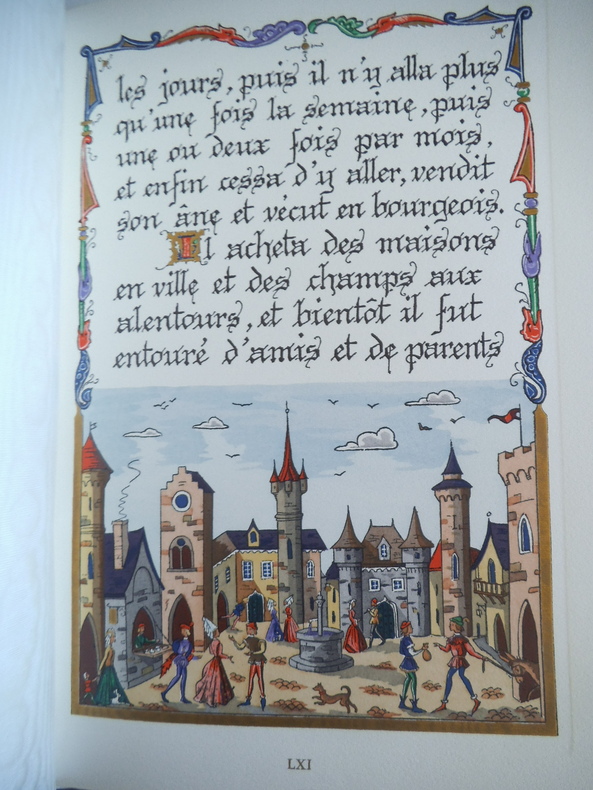 les jours, puis il n'y alla plus
qu'une fois la semaine, puis
une ou deux fois par mois,
et enfin cessa d'y aller, vendit
son âne et vécut en bourgeois.
Il acheta des maisons
en ville et des champs aux
alentours, et bientôt il fut
entouré d'amis et de parents
LXI